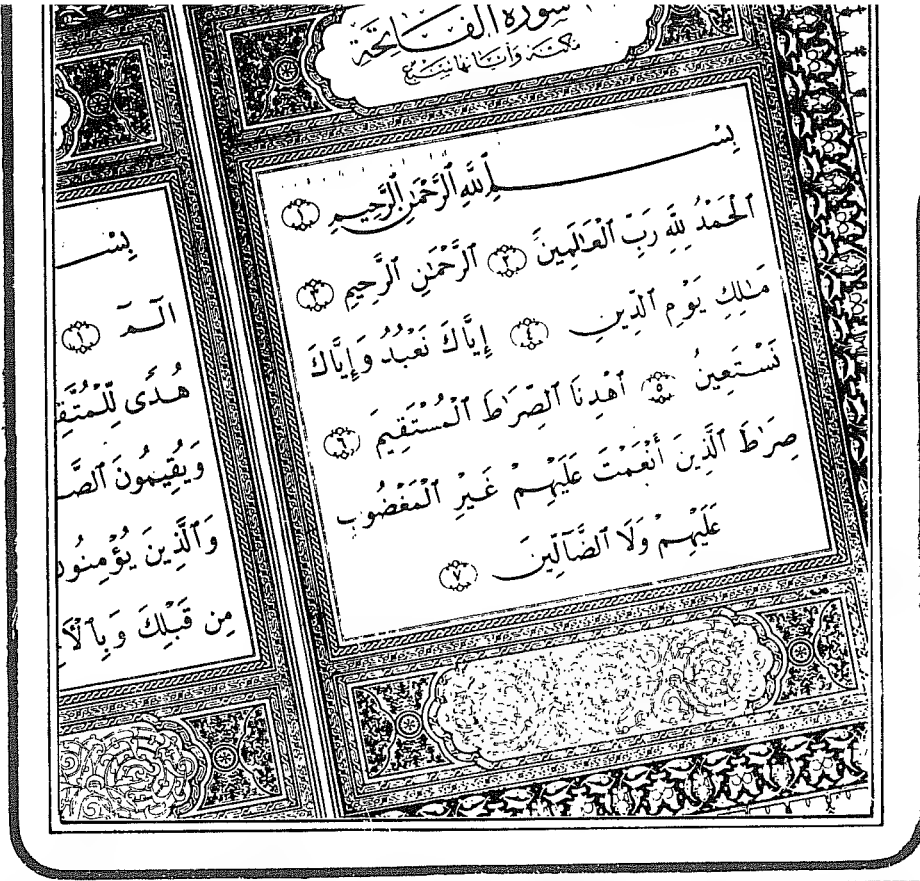 سورة الفاتحة
مكية وآياتها سبع
بِسْمِ ٱللَّهِ ٱلرَّحْمَٰنِ ٱلرَّحِيمِ ١
ٱلْحَمْدُ لِلَّهِ رَبِّ ٱلْعَٰلَمِينَ ٢ ٱلرَّحْمَٰنِ ٱلرَّحِيمِ ٣
مَٰلِكِ يَوْمِ ٱلدِّينِ ٤ إِيَّاكَ نَعْبُدُ وَإِيَّاكَ
نَسْتَعِينُ ٥ ٱهْدِنَا ٱلصِّرَٰطَ ٱلْمُسْتَقِيمَ ٦
صِرَٰطَ ٱلَّذِينَ أَنْعَمْتَ عَلَيْهِمْ غَيْرِ ٱلْمَغْضُوبِ
عَلَيْهِمْ وَلَا ٱلضَّآلِّينَ ٧
بِسْ
الٓمٓ ١
هُدًى لِّلْمُتَّقِ
وَيُقِيمُونَ ٱلصَّ
وَٱلَّذِينَ يُؤْمِنُونَ
مِن قَبْلِكَ وَبِٱلْأَخِ